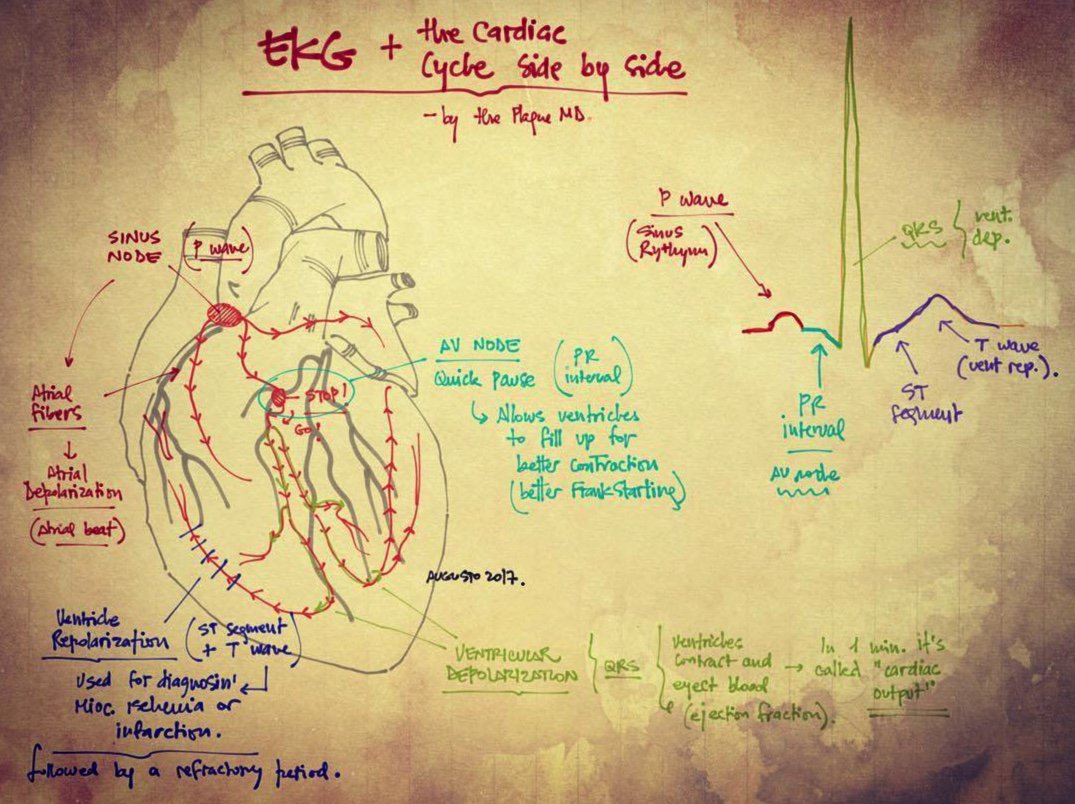 EKG + the Cardiac
Cycle side by side
- by the Plague MD.
SINUS
NODE
(P wave)
Atrial
Fibers
Atrial
Depolarization
(Atrial beat)
STOP!
GO!
AV NODE
Quick pause
(PR
interval)
Allows ventricles
to fill up for
better contraction
(better Frank-Starling)
P wave
(Sinus
Rythym)
QRS
vent.
dep.
T wave
(vent rep.).
ST
segment
PR
interval
AV node
AUGUSTO 2017.
Ventricle
Repolarization
(ST segment
+ T wave)
Used for diagnosin'
Mioc. Ischemia or
infarction.
followed by a refractory period.
VENTRICULAR
DEPOLARIZATION
QRS
ventricles
contract and
eyect blood
(ejection fraction).
In 1 min. it's
called "cardiac
output"